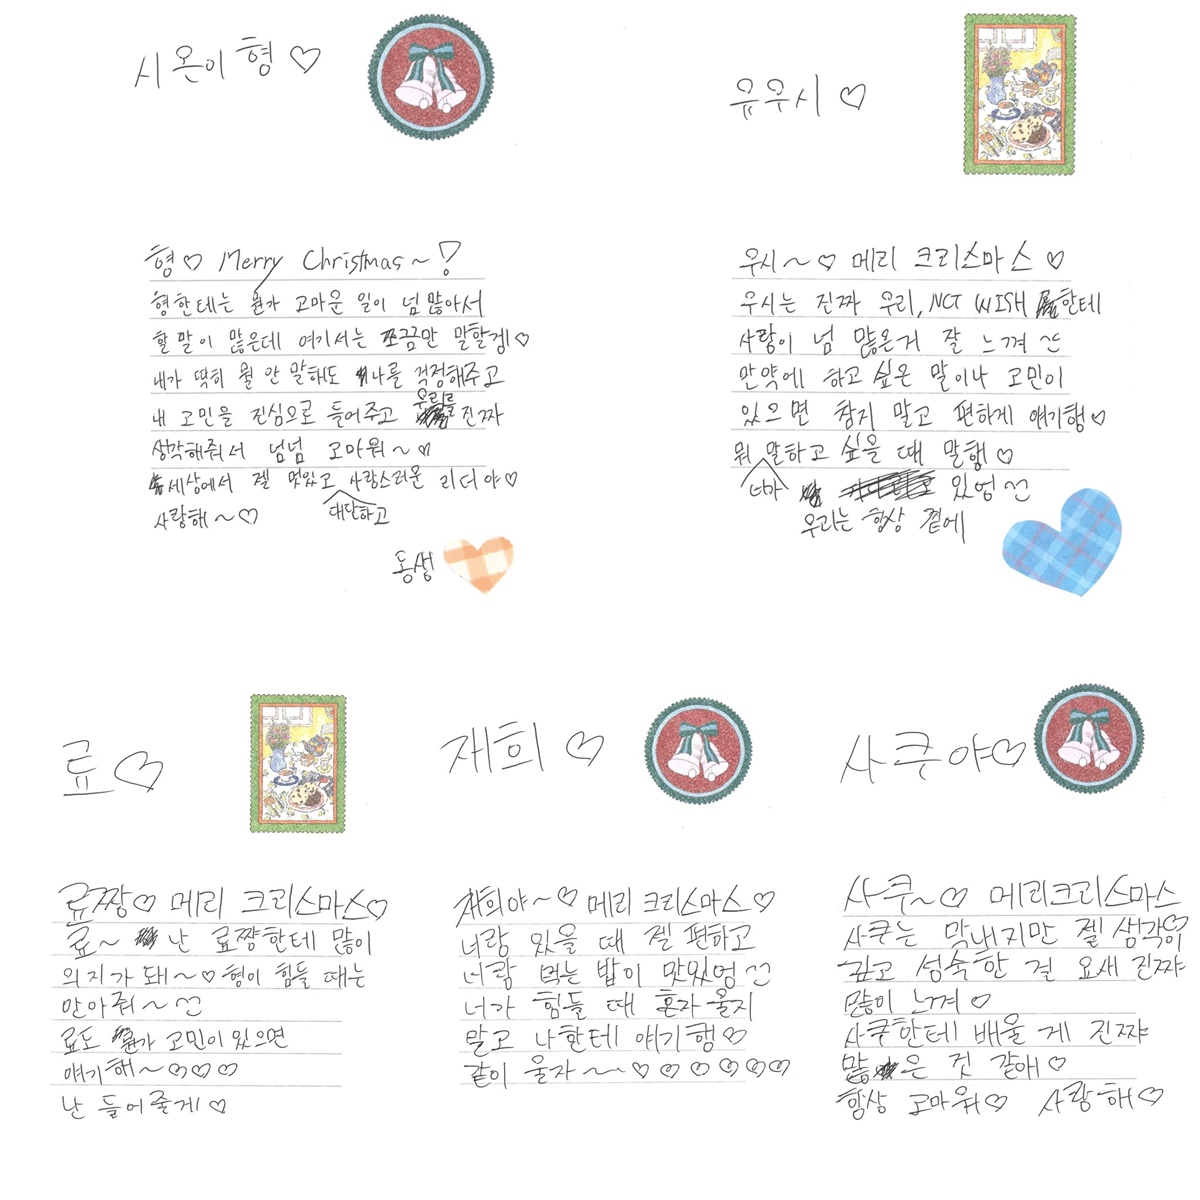 시온이 형 ♡
형 ♡ Merry Christmas ~ !
형한테는 뭔가 고마운 일이 넘 많아서
할 말이 많은데 여기서는 쪼금만 말할겡 ♡
내가 딱히 뭘 안 말해도 나를 걱정해주고
내 고민을 진심으로 들어주고 우리를 진짜
생각해줘서 넘넘 고마워~♡
세상에서 젤 멋있고 대단하고 사랑스러운 리더야♡
사랑해~♡
동생
유우시 ♡
우시~♡ 메리 크리스마스 ♡
우시는 진짜 우리, NCT WISH 한테
사랑이 넘 많은거 잘 느껴
만약에 하고 싶은 말이나 고민이
있으면 참지 말고 편하게 얘기행♡
뭐 말하고 싶을 때 말행♡
우리는 항상 곁에 있엉
료♡
료짱♡ 메리 크리스마스♡
료~ 난 료쨩한테 많이
의지가 돼~♡ 형이 힘들 때는
안아줘~
료도 뭔가 고민이 있으면
얘기해~♡♡♡
난 들어줄게♡
재희 ♡
재희야~♡ 메리 크리스마스♡
너랑 있을 때 젤 편하고
너랑 먹는 밥이 맛있엉
너가 힘들 때 혼자 울지
말고 나한테 얘기행♡
같이 울자~~♡♡♡♡♡♡
사쿠야♡
사쿠~♡ 메리크리스마스
사쿠는 막내지만 젤 생각이♡
깊고 성숙한 걸 요새 진쨔
많이 느껴♡
사쿠한테 배울 게 진쨔
많은 것 같애♡
항상 고마워♡ 사랑해♡